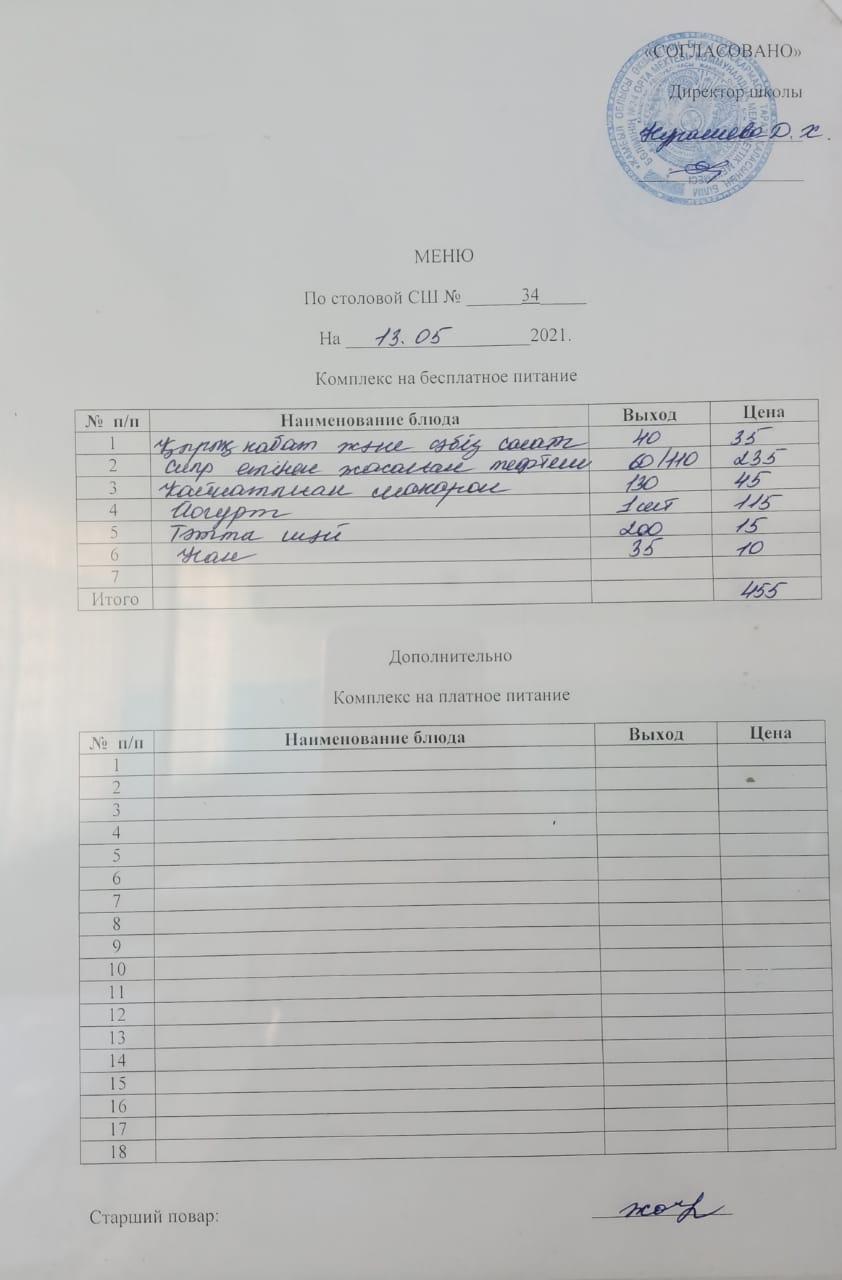 «СОГЛАСОВАНО»
Директор школы
Д. Х.
МЕНЮ
По столовой СШ № 34
На 13. 05 2021.
Комплекс на бесплатное питание
№ п/п Наименование блюда Выход Цена
1 қабат және сәбіз салат 40 35
2 Сиыр етінен жасалған тефтели 60/110 235
3 макарон 130 45
4 Йогурт 1 шт 115
5 Тәтті шәй 200 15
6 Нан 35 10
7
Итого 455
Дополнительно
Комплекс на платное питание
№ п/п Наименование блюда Выход Цена
1
2
3
4
5
6
7
8
9
10
11
12
13
14
15
16
17
18
Старший повар: